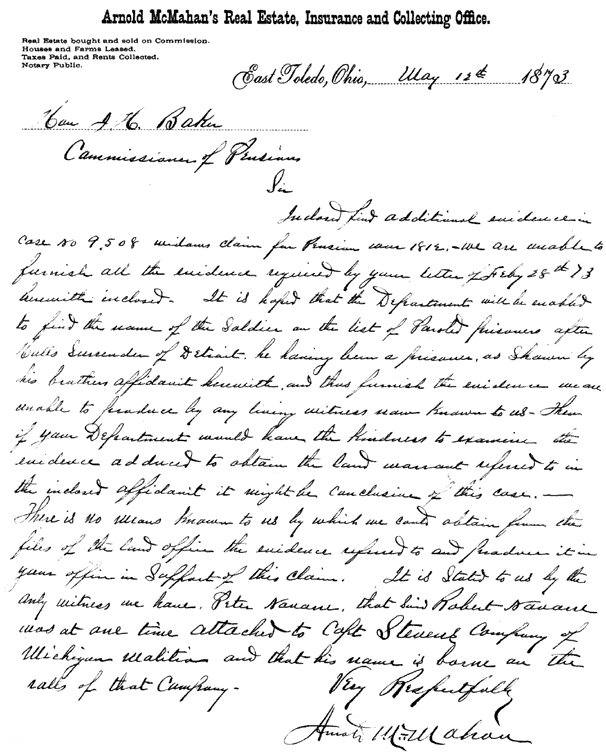 Arnold McMahan's Real Estate, Insurance and Collecting Office.
Real Estate bought and sold on Commission.
Houses and Farms Leased.
Taxes Paid, and Rents Collected.
Notary Public.
East Toledo, Ohio, May 12th 1873
Hon J. H. Baker
Commissioner of Pensions
Sir
Inclosed find additional evidence in
case No 9,508 widows claim for Pension war 1812,- we are unable to
furnish all the evidence required by your letter of Feby 28th 73
herewith inclosed - It is hoped that the Department will be enabled
to find the name of the Soldier on the list of Paroled prisoners after
Hulls Surrender of Detroit, he having been a prisoner, as Shown by
his brothers affidavit herewith, and thus furnish the evidence we are
unable to produce by any living witness now Known to us - Then
if your Department would have the kindness to examine the
evidence adduced to obtain the land warrant referred to in
the inclosed affidavit it might be conclusive of this case. —
There is no means Known to us by which we could obtain from the
files of the land office the evidence referred to and produce it in
your office in Support of this claim. It is Stated to us by the
only witness we have, Peter Navare, that Said Robert Navare
was at one time attached to Capt Stevens Company of
Michigan Malitia and that his name is borne on the
rolls of that Company -
Very Respectfully
Arnold McMahan